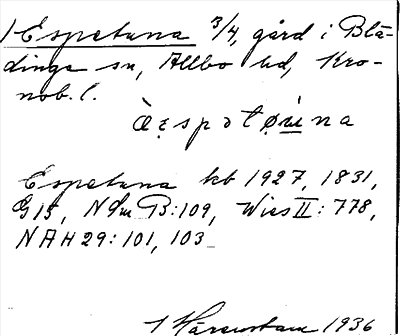 1 Espetuna 3/4, gård i Blä-
dinge sn, Allbo hd, Kro-
nob. l.
Espetuna kb 1927, 1831,
G 15, NSm B:109, Wies II: 778,
NAH 29: 101, 103
1 Härenstam 1936